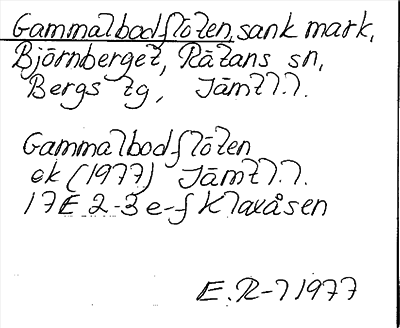 Gammalbodflöten, sank mark,
Björnberget, Rätans sn,
Bergs tg, Jämtl.l.
Gammalbodflöten
ek (1977) Jämtl.l.
17E 2-3 e-f Klaxåsen
E.R-l 1977